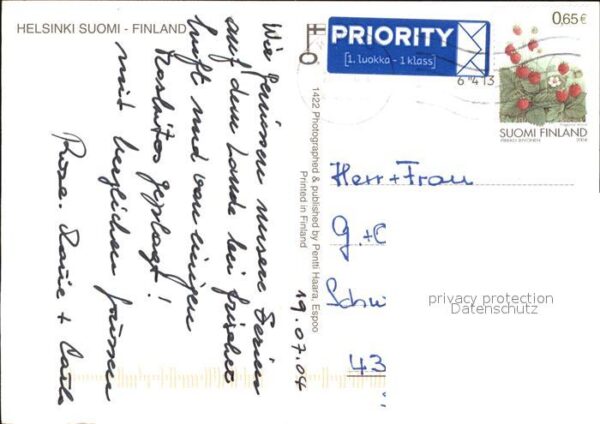 HELSINKI SUOMI - FINLAND
Wir geniessen unsere Ferien
auf dem Lande bei frischer
Luft und von einigen
Moskitos geplagt!
mit herzlichen Grüssen
Rosm. Louis + Carla
19.07.04
1422 Photographed & published by Pentti Haara, Espoo
Printed in Finland
PRIORITY
[1. luokka - 1 klass]
0,65€
SUOMI FINLAND
6 4 13
Herr + Frau
G. + C
Schw
43
privacy protection
Datenschutz